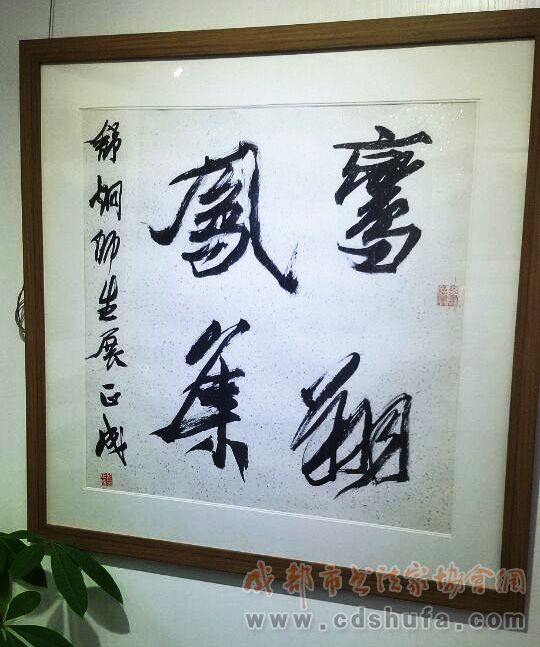 鸞翔
鳳集
舒炯师生展正成
成都市书法家协会网
www.cdshufa.com